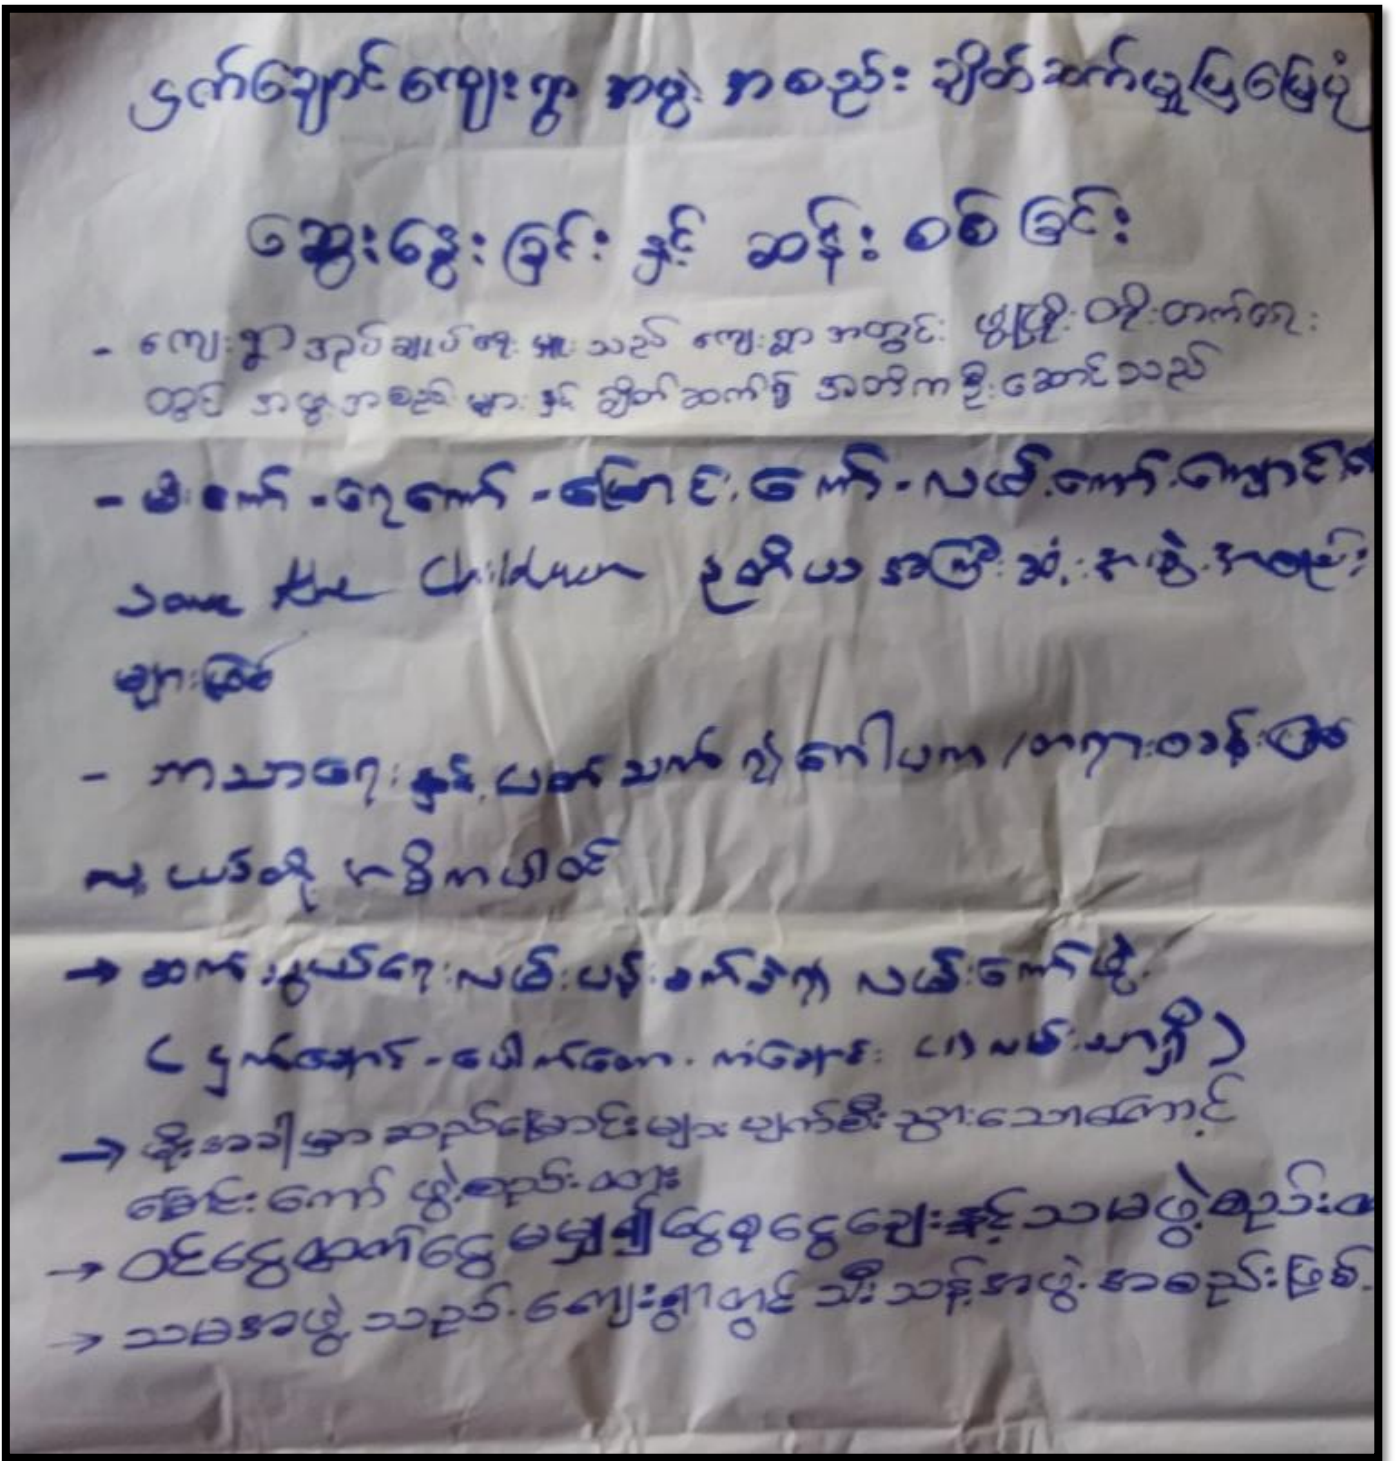 ငှက်ချောင်ကျေးရွာ အဖွဲ့ အစည်း ချိတ်ဆက်မှုပြမြေပုံ
ဆွေးနွေးခြင်း နှင့် ဆန်းစစ်ခြင်း
- ကျေးရွာ အုပ်ချုပ်ရေးမှူး သည် ကျေးရွာ အတွင်း ဖွံ့ဖြိုး တိုးတက်ရေး
တွင် အဖွဲ့အစည်း များ နှင့် ချိတ်ဆက်၍ အဓိက ဦးဆောင်သည်
- မီးကော် - ရေကော် - မြောင်းကော် - လမ်းကော် ကျောင်း
Save the Children ဒုတိယ အကြီးဆုံး အဖွဲ့အစည်း
များဖြစ်
- ဘာသာရေး နှင့် ပတ်သက်၍ ဂေါပက / တရားစခန်း ဖြစ်
လူငယ်တို့ အဓိကပါဝင်
→ ဆက်သွယ်ရေး လမ်းပန်း ခက်ခဲ၍ လမ်းကော်ဖွဲ့
( ငှက်ချောင် - ပေါက်တော ကံချောင်း (၁) လမ်းသာရှိ )
→ မိုးအခါမှာ ဆည်မြောင်းများ ပျက်စီးသွားသောကြောင့်
မြောင်းကော် ဖွဲ့စည်းထား
→ ဝင်ငွေထွက်ငွေ မမျှ၍ ငွေစုငွေချေးနှင့် သမဖွဲ့စည်းထ
→ သမအဖွဲ့ သည် ကျေးရွာတွင် သီးသန့်အဖွဲ့ အစည်းဖြစ်